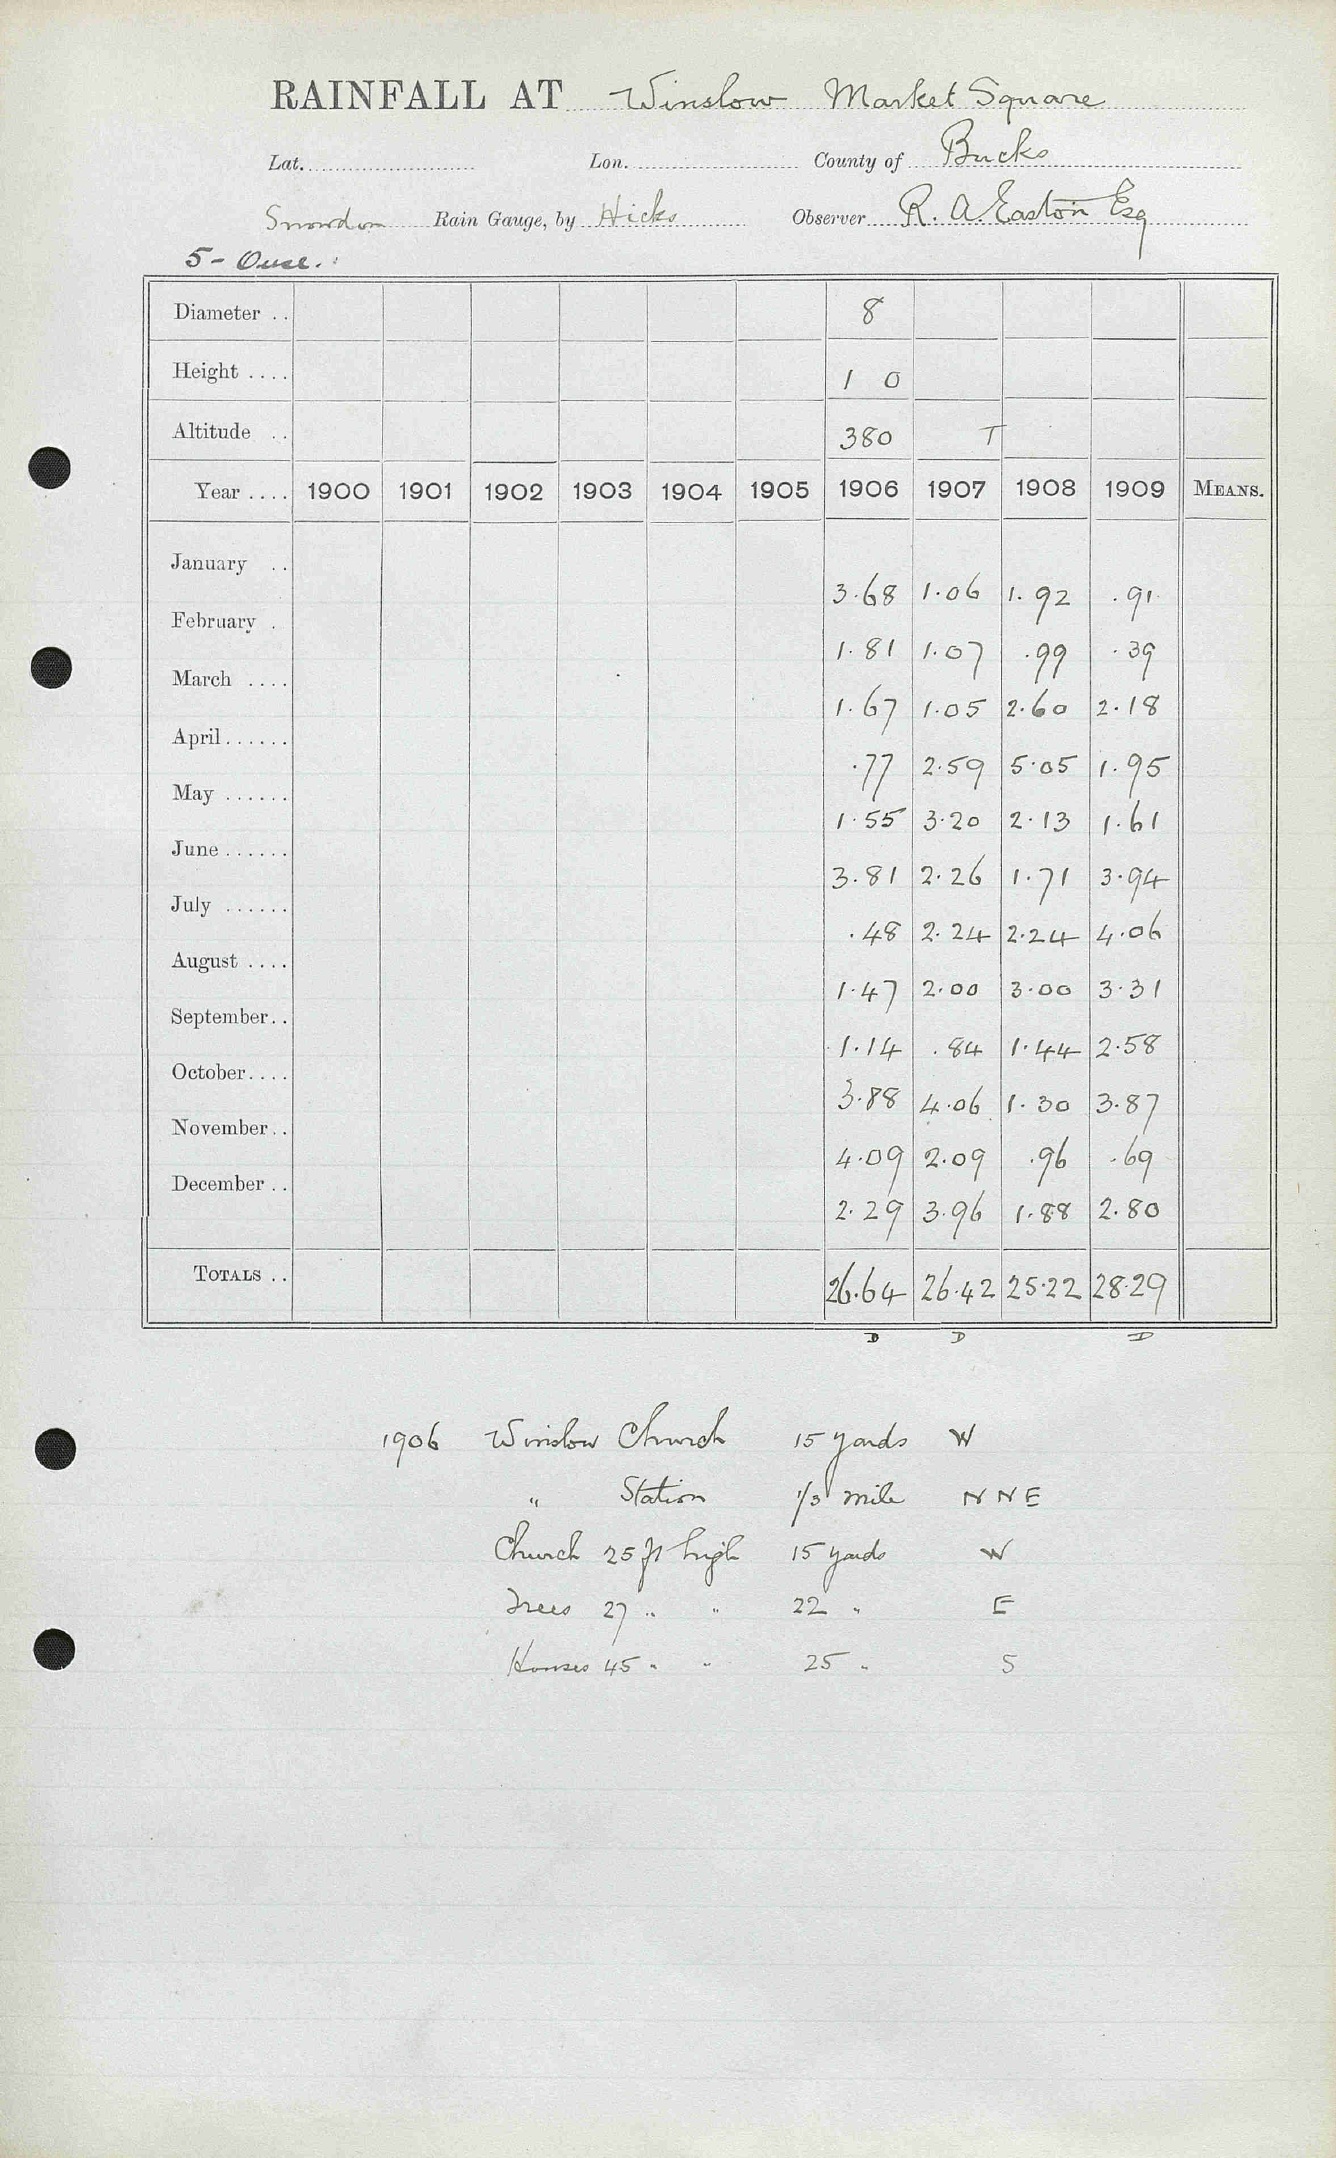 RAINFALL AT Winslow Market Square
Lat. Lon. County of Bucks
Snowdon Rain Gauge, by Hicks Observer R. A. Easton Esq
5 - Ouse.
Diameter .. 8
Height .... 1 0
Altitude .. 380 T
Year .... 1900 1901 1902 1903 1904 1905 1906 1907 1908 1909 MEANS.
January ..
3.68 1.06 1.92 .91
February .
1.81 1.07 .99 .39
March ....
1.67 1.05 2.60 2.18
April......
.77 2.59 5.05 1.95
May ......
1.55 3.20 2.13 1.61
June ......
3.81 2.26 1.71 3.94
July ......
.48 2.24 2.24 4.06
August ....
1.47 2.00 3.00 3.31
September..
1.14 .84 1.44 2.58
October....
3.88 4.06 1.30 3.87
November..
4.09 2.09 .96 .69
December ..
2.29 3.96 1.88 2.80
TOTALS .. 26.64 26.42 25.22 28.29
D D D
1906 Winslow Church 15 yards W
" Station 1/3 mile N N E
Church 25 ft high 15 yards W
Trees 27 " " 22 " E
Houses 45 " " 25 " S